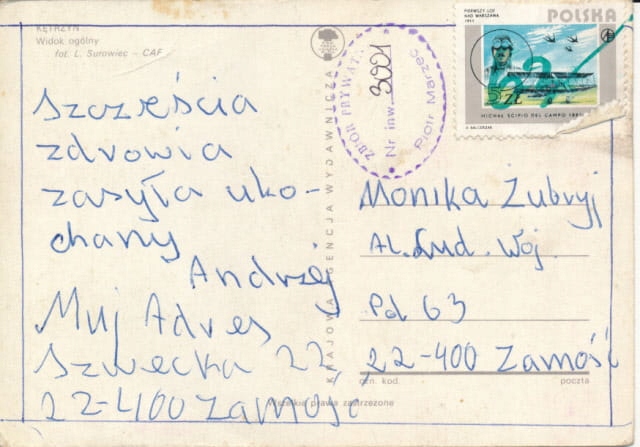 KĘTRZYN
Widok ogólny
fot. L. Surowiec - CAF
Szczęścia
zdrowia
zasyła uko-
chany
Andrzej
Muj Adres
Szwecka 22
22-400 Zamość
KRAJOWA AGENCJA WYDAWNICZA
Wszelkie prawa zastrzeżone
ZBIÓR PRYWATNY
Nr inw. 3001
Piotr Marzec
PIERWSZY LOT
NAD WARSZAWĄ
1911
POLSKA
5 ZŁ
MICHAŁ SCIPIO DEL CAMPO
Monika Zubryj
Al. Lud. Woj.
Pol 63
22-400 Zamość
ozn. kod.
poczta